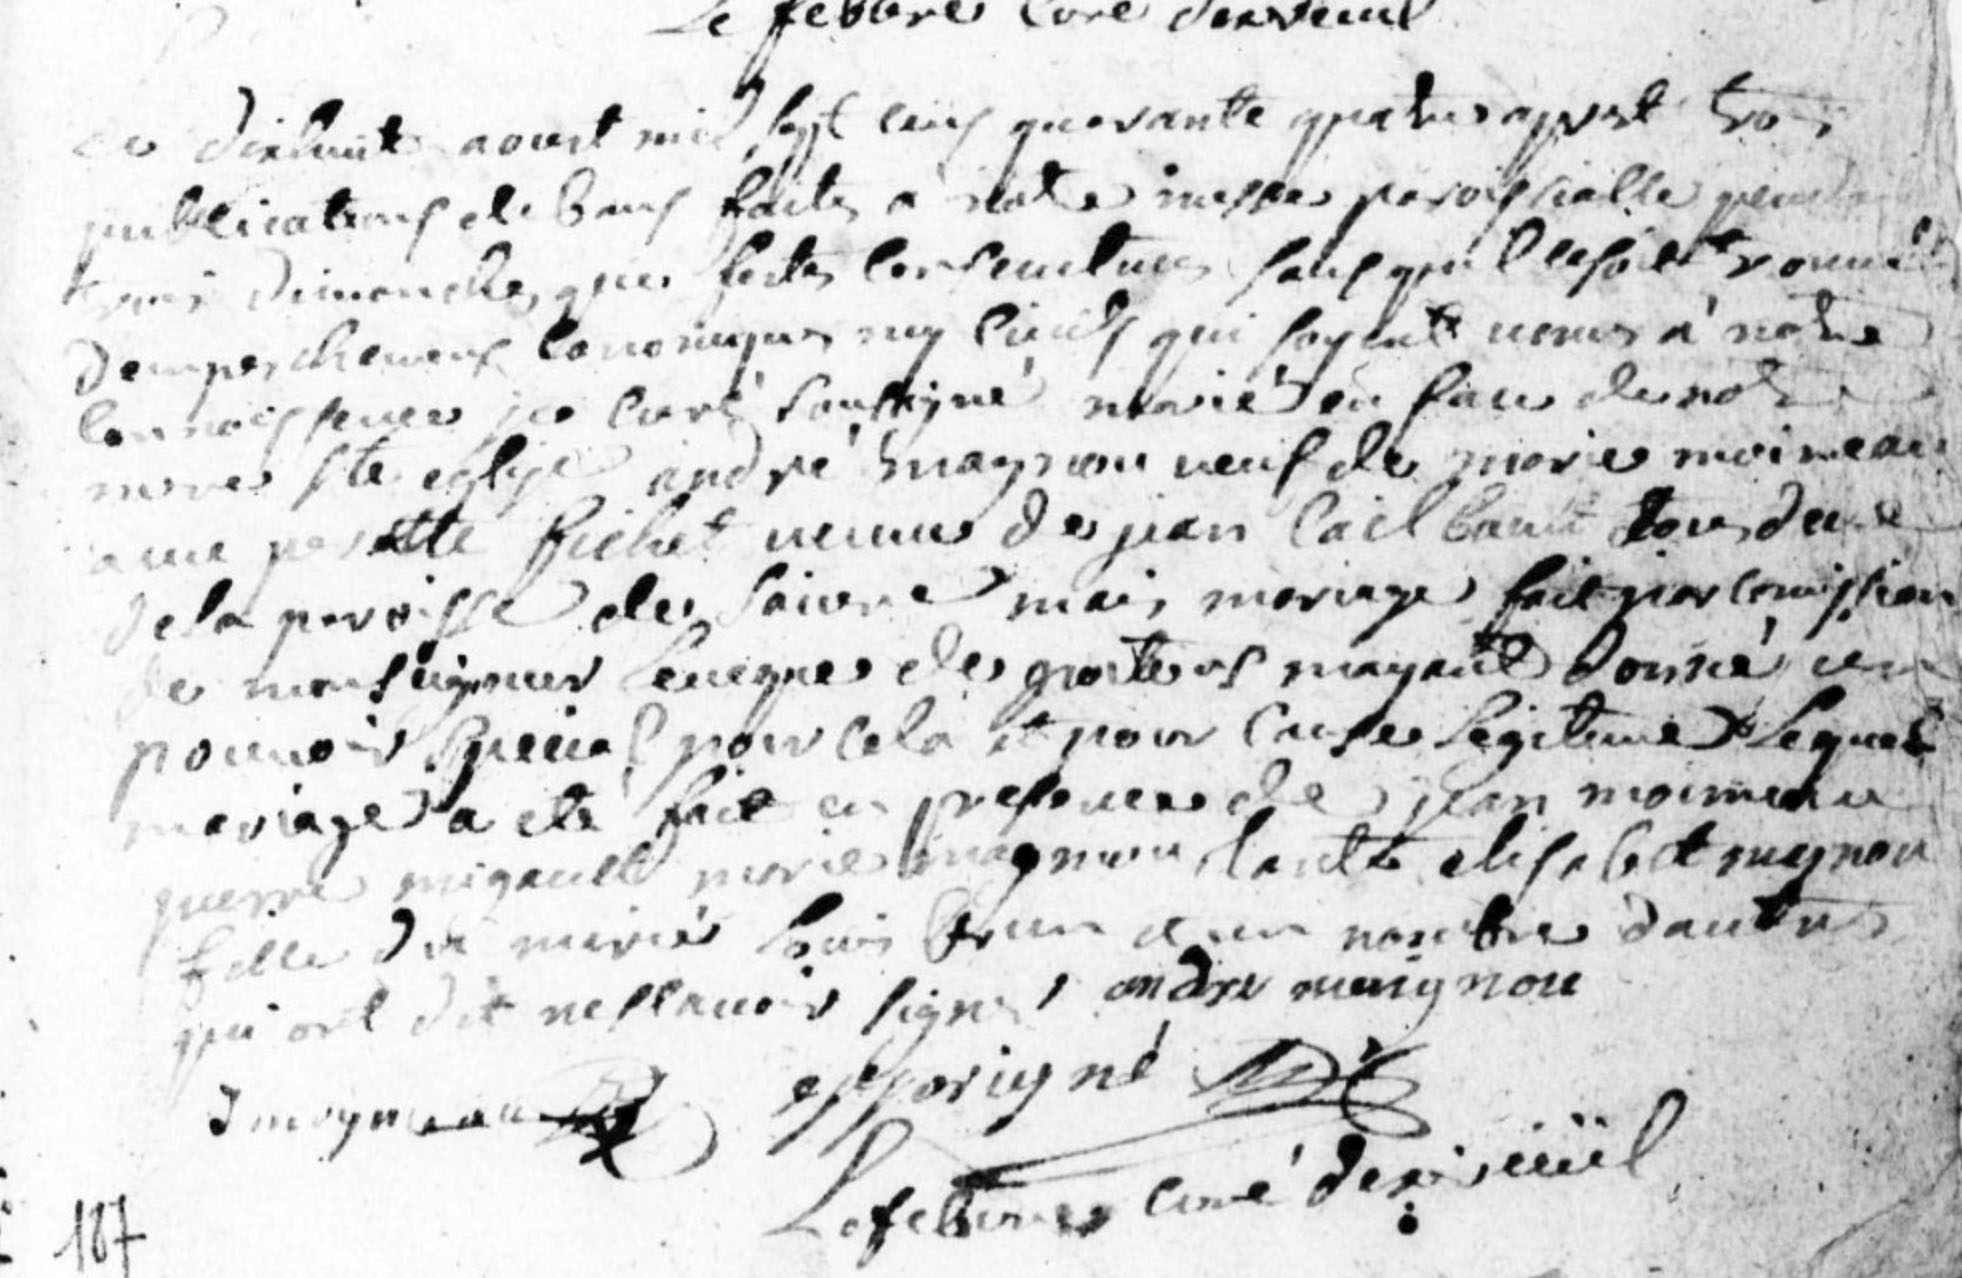 Lefebvre Curé dexireuil
ce dixhuit aoust mil sept cens quarante quatre aprest trois
publications de bans faites a notre messe paroissialle pendant
trois dimanches que festes consecutives sans qu'il se soit trouvé
dempeschemens canoniques ny civils qui soyent venus à notre
connoissence je curé soussigné marié en face de notre
mere ste eglise andré magnou veuf de marie moineau
a perette fichet veuve de jean Cailbaut tous deux
de la paroisse de saivre mais mariage fait par comission
de monseigneur leveque de poitiers mayant donné un
pouvoir special pour cela et pour cause legitime lequel
mariage a eté fait en presence de jean moineau
pierre migault marie magnou tante elisabet magnou
fille du marié louis brun et un nombre dautres
qui ont dit nesçavoir signer andre maignou
J moyneau epporigné
Lefebvre Curé dexireüil
187